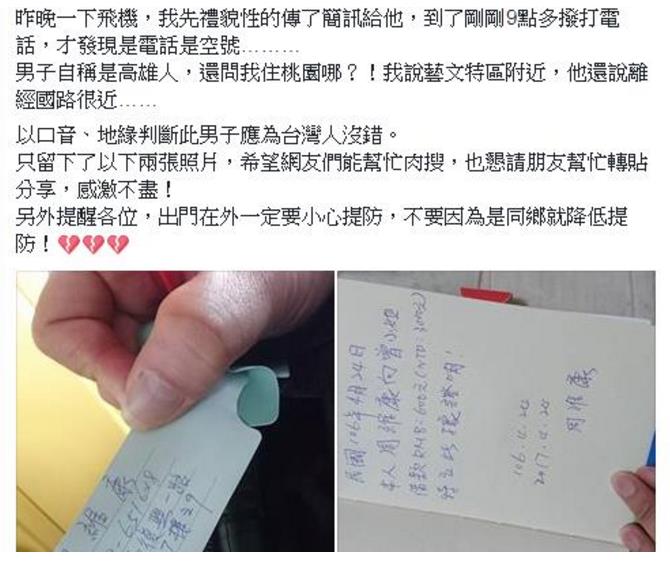 昨晚一下飛機，我先禮貌性的傳了簡訊給他，到了剛剛9點多撥打電
話，才發現是電話是空號………
男子自稱是高雄人，還問我住桃園哪？！我說藝文特區附近，他還說離
經國路很近……
以口音、地緣判斷此男子應為台灣人沒錯。
只留下了以下兩張照片，希望網友們能幫忙肉搜，也懇請朋友幫忙轉貼
分享，感激不盡！
另外提醒各位，出門在外一定要小心提防，不要因為是同鄉就降低提
防！💔💔💔
民國106年4月24日
本人周維康向曾小姐
借款RMB:600元(NTD:3000元)
特立此據證明！
周維康
106.4.24
2017.4.24